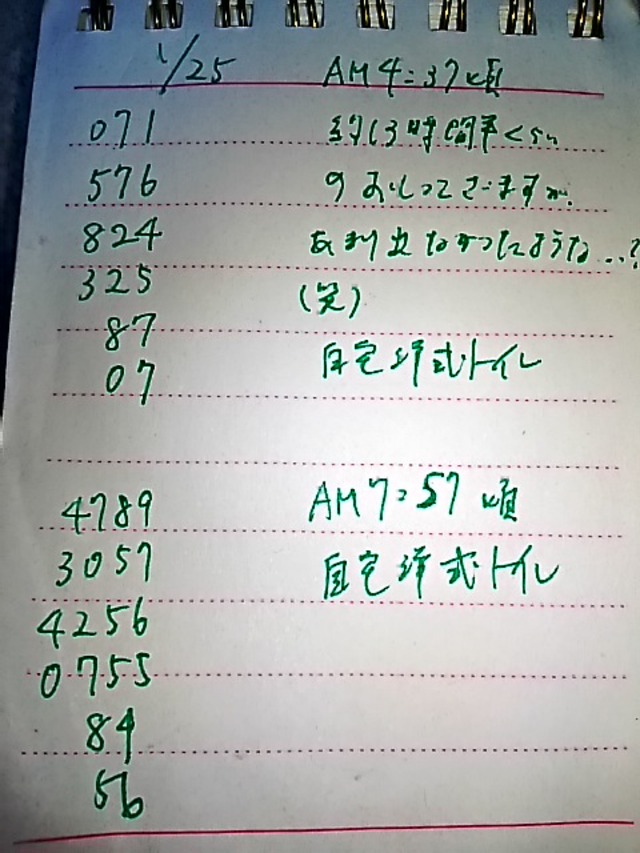 1/25 AM4:37頃
071 約3時間半くらい
576 のおしっこですが、
824 あまり出なかったような...?
325 (笑)
87
07 自宅洋式トイレ
4789 AM7:57頃
3057 自宅洋式トイレ
4256
0755
84
56